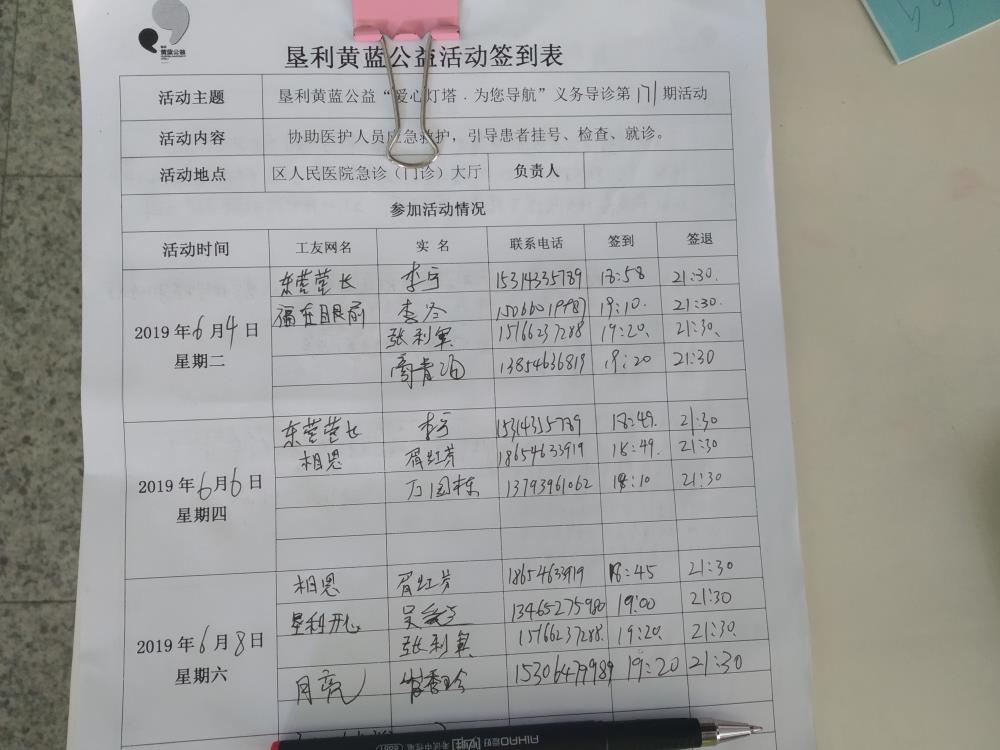 黄蓝公益
垦利黄蓝公益活动签到表
活动主题 垦利黄蓝公益“爱心灯塔.为您导航”义务导诊第171期活动
活动内容 协助医护人员应急救护，引导患者挂号、检查、就诊。
活动地点 区人民医院急诊（门诊）大厅 负责人
参加活动情况
活动时间 工友网名 实 名 联系电话 签到 签退
2019年6月4日
星期二
东营营长 李宁 15314335789 18:58 21:30.
福在眼前 李 19:10. 21:30.
张利军 15166237288 19:20. 21:30.
13854636819 19:20 21:30
2019年6月6日
星期四
东营营长 李宁 15314335789 18:49. 21:30
相思 胥红芳 18654633919 18:49. 21:30
万国栋 13793961062 18:10 21:30
2019年6月8日
星期六
相思 胥红芳 18654633919 18:45 21:30
垦利开心 吴 13465275980 19:00 21:30
张利军 15166237288. 19:20. 21:30.
月亮 15306479989 19:20 21:30
AIHAO